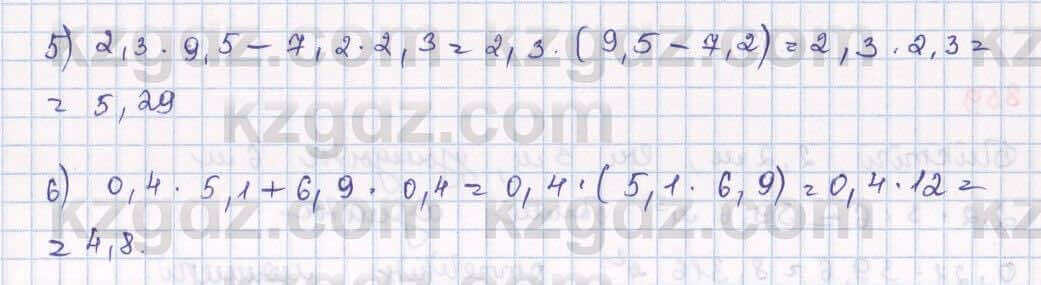 5) 2,3 · 9,5 − 7,2 · 2,3 = 2,3 · (9,5 − 7,2) = 2,3 · 2,3 =
= 5,29
6) 0,4 · 5,1 + 6,9 · 0,4 = 0,4 · (5,1 · 6,9) = 0,4 · 12 =
= 4,8.
kzgdz.com